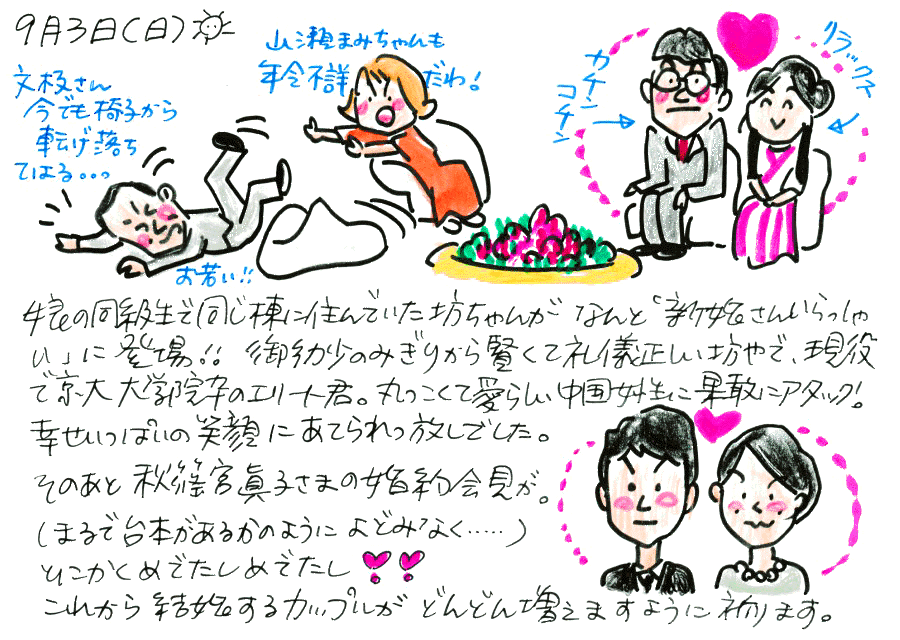 9月3日(日)
文枝さん
今でも椅子から
転げ落ち
てはる...。
山瀬まみちゃんも
年令不詳だわ!
カチンコチン
リラックス
お若い!!
娘の同級生で同じ棟に住んでいた坊ちゃんが なんと「新婚さんいらっしゃ
い」に登場!! 御幼少のみぎりから賢くて礼儀正しい坊やで、現役
で京大 大学院卒のエリート君。丸っこくて愛らしい中国女性に果敢にアタック!
幸せいっぱいの笑顔にあてられっ放しでした。
そのあと 秋篠宮眞子さまの婚約会見が。
(まるで台本があるかのように よどみなく......)
とにかくめでたしめでたし
これから結婚するカップルが どんどん増えますように祈ります。